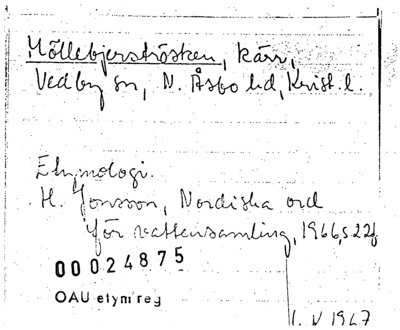 Möllebjerströsken, kärr,
Vedby sn, N. Åsbo hd, Krist. l.
Etymologi.
H. Jonsson, Nordiska ord
för vattensamling, 1966, s 22f
00024875
OAU etym reg
1. V 1967